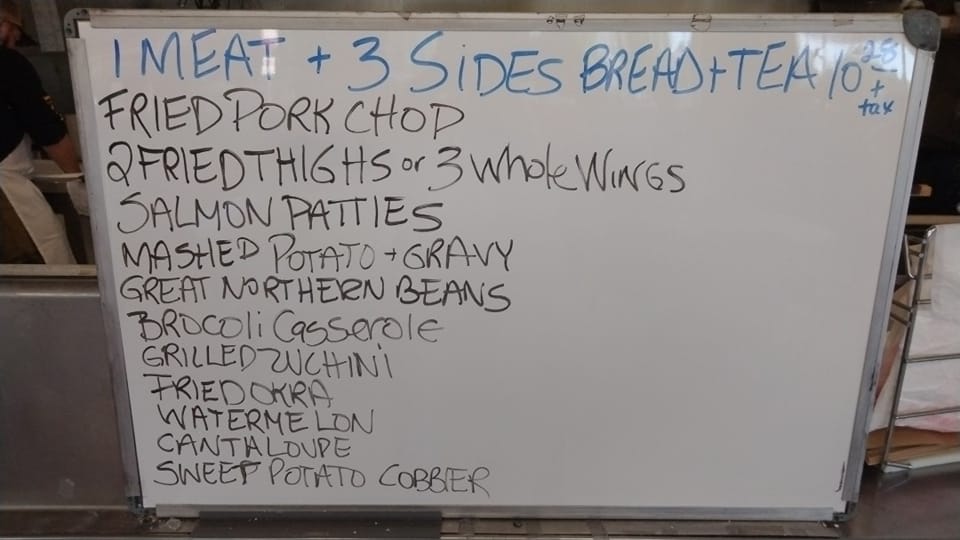 1 MEAT + 3 SIDES BREAD + TEA 10 28 + tax
FRIED PORK CHOP
2 FRIED THIGHS or 3 whole WINGS
SALMON PATTIES
MASHED POTATO + GRAVY
GREAT NORTHERN BEANS
BROCOLi Casserole
GRILLED ZUCHINi
FRIED OKRA
WATERMELON
CANTALOUPE
SWEET POTATO COBBLER